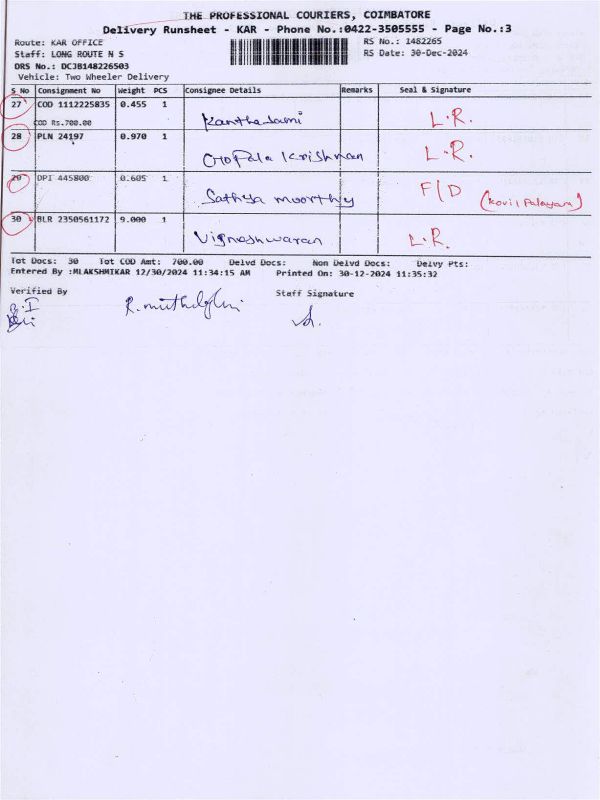 THE PROFESSIONAL COURIERS, COIMBATORE
Delivery Runsheet - KAR - Phone No.:0422-3505555 - Page No.:3
Route: KAR OFFICE
RS No.: 1482265
Staff: LONG ROUTE N S
RS Date: 30-Dec-2024
DRS No.: DCJB148226503
Vehicle: Two Wheeler Delivery
S No Consignment No Weight PCS Consignee Details Remarks Seal & Signature
27 COD 1112225835 0.455 1
COD Rs.700.00 Kanthasami L.R.
28 PLN 24197 0.970 1
Gopala Krishnan L.R.
29 DPI 445800 0.605 1
Sathya moorthy F/D (Kovil Palayam)
30 BLR 2350561172 9.000 1
Vignashwaran L.R.
Tot Docs: 30 Tot COD Amt: 700.00 Delvd Docs: Non Delvd Docs: Delvy Pts:
Entered By :MLAKSHMIKAR 12/30/2024 11:34:15 AM Printed On: 30-12-2024 11:35:32
Verified By
Staff Signature